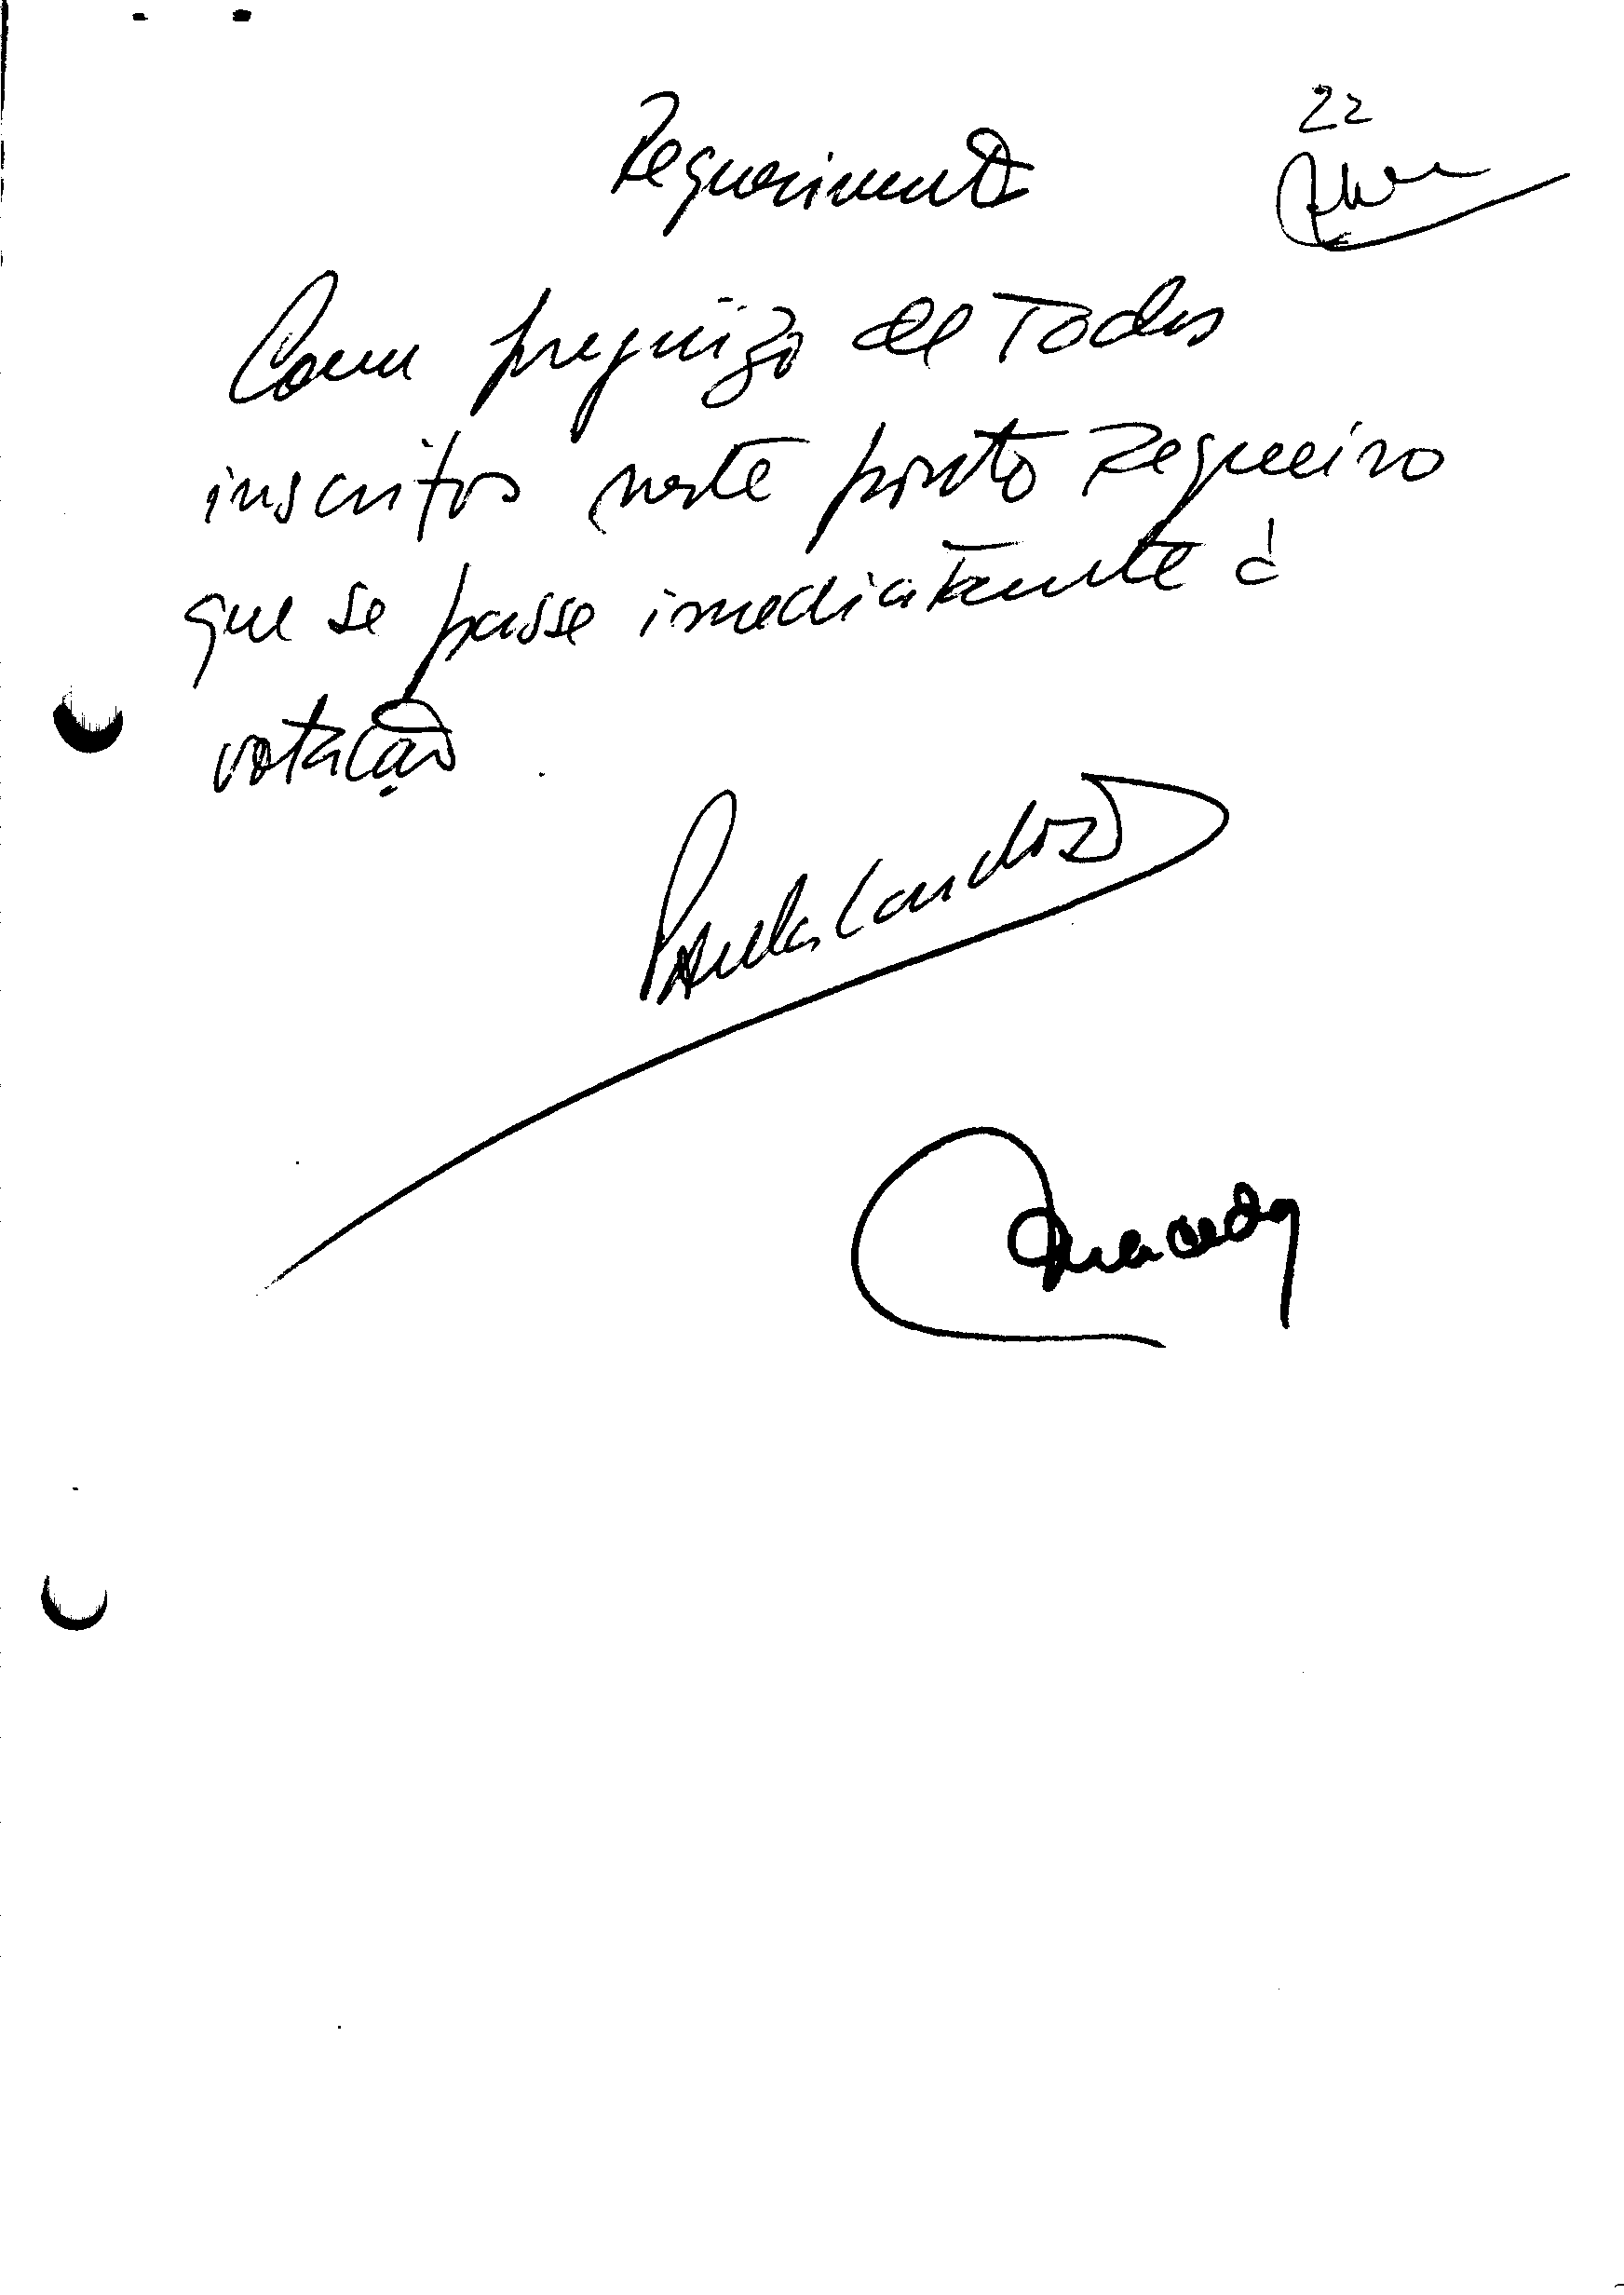 22
Requerimento
Com prejuizo de Todos
inscritos neste ponto Requeiro
que se passe imediatamente à
votação.
Paula Cardoso